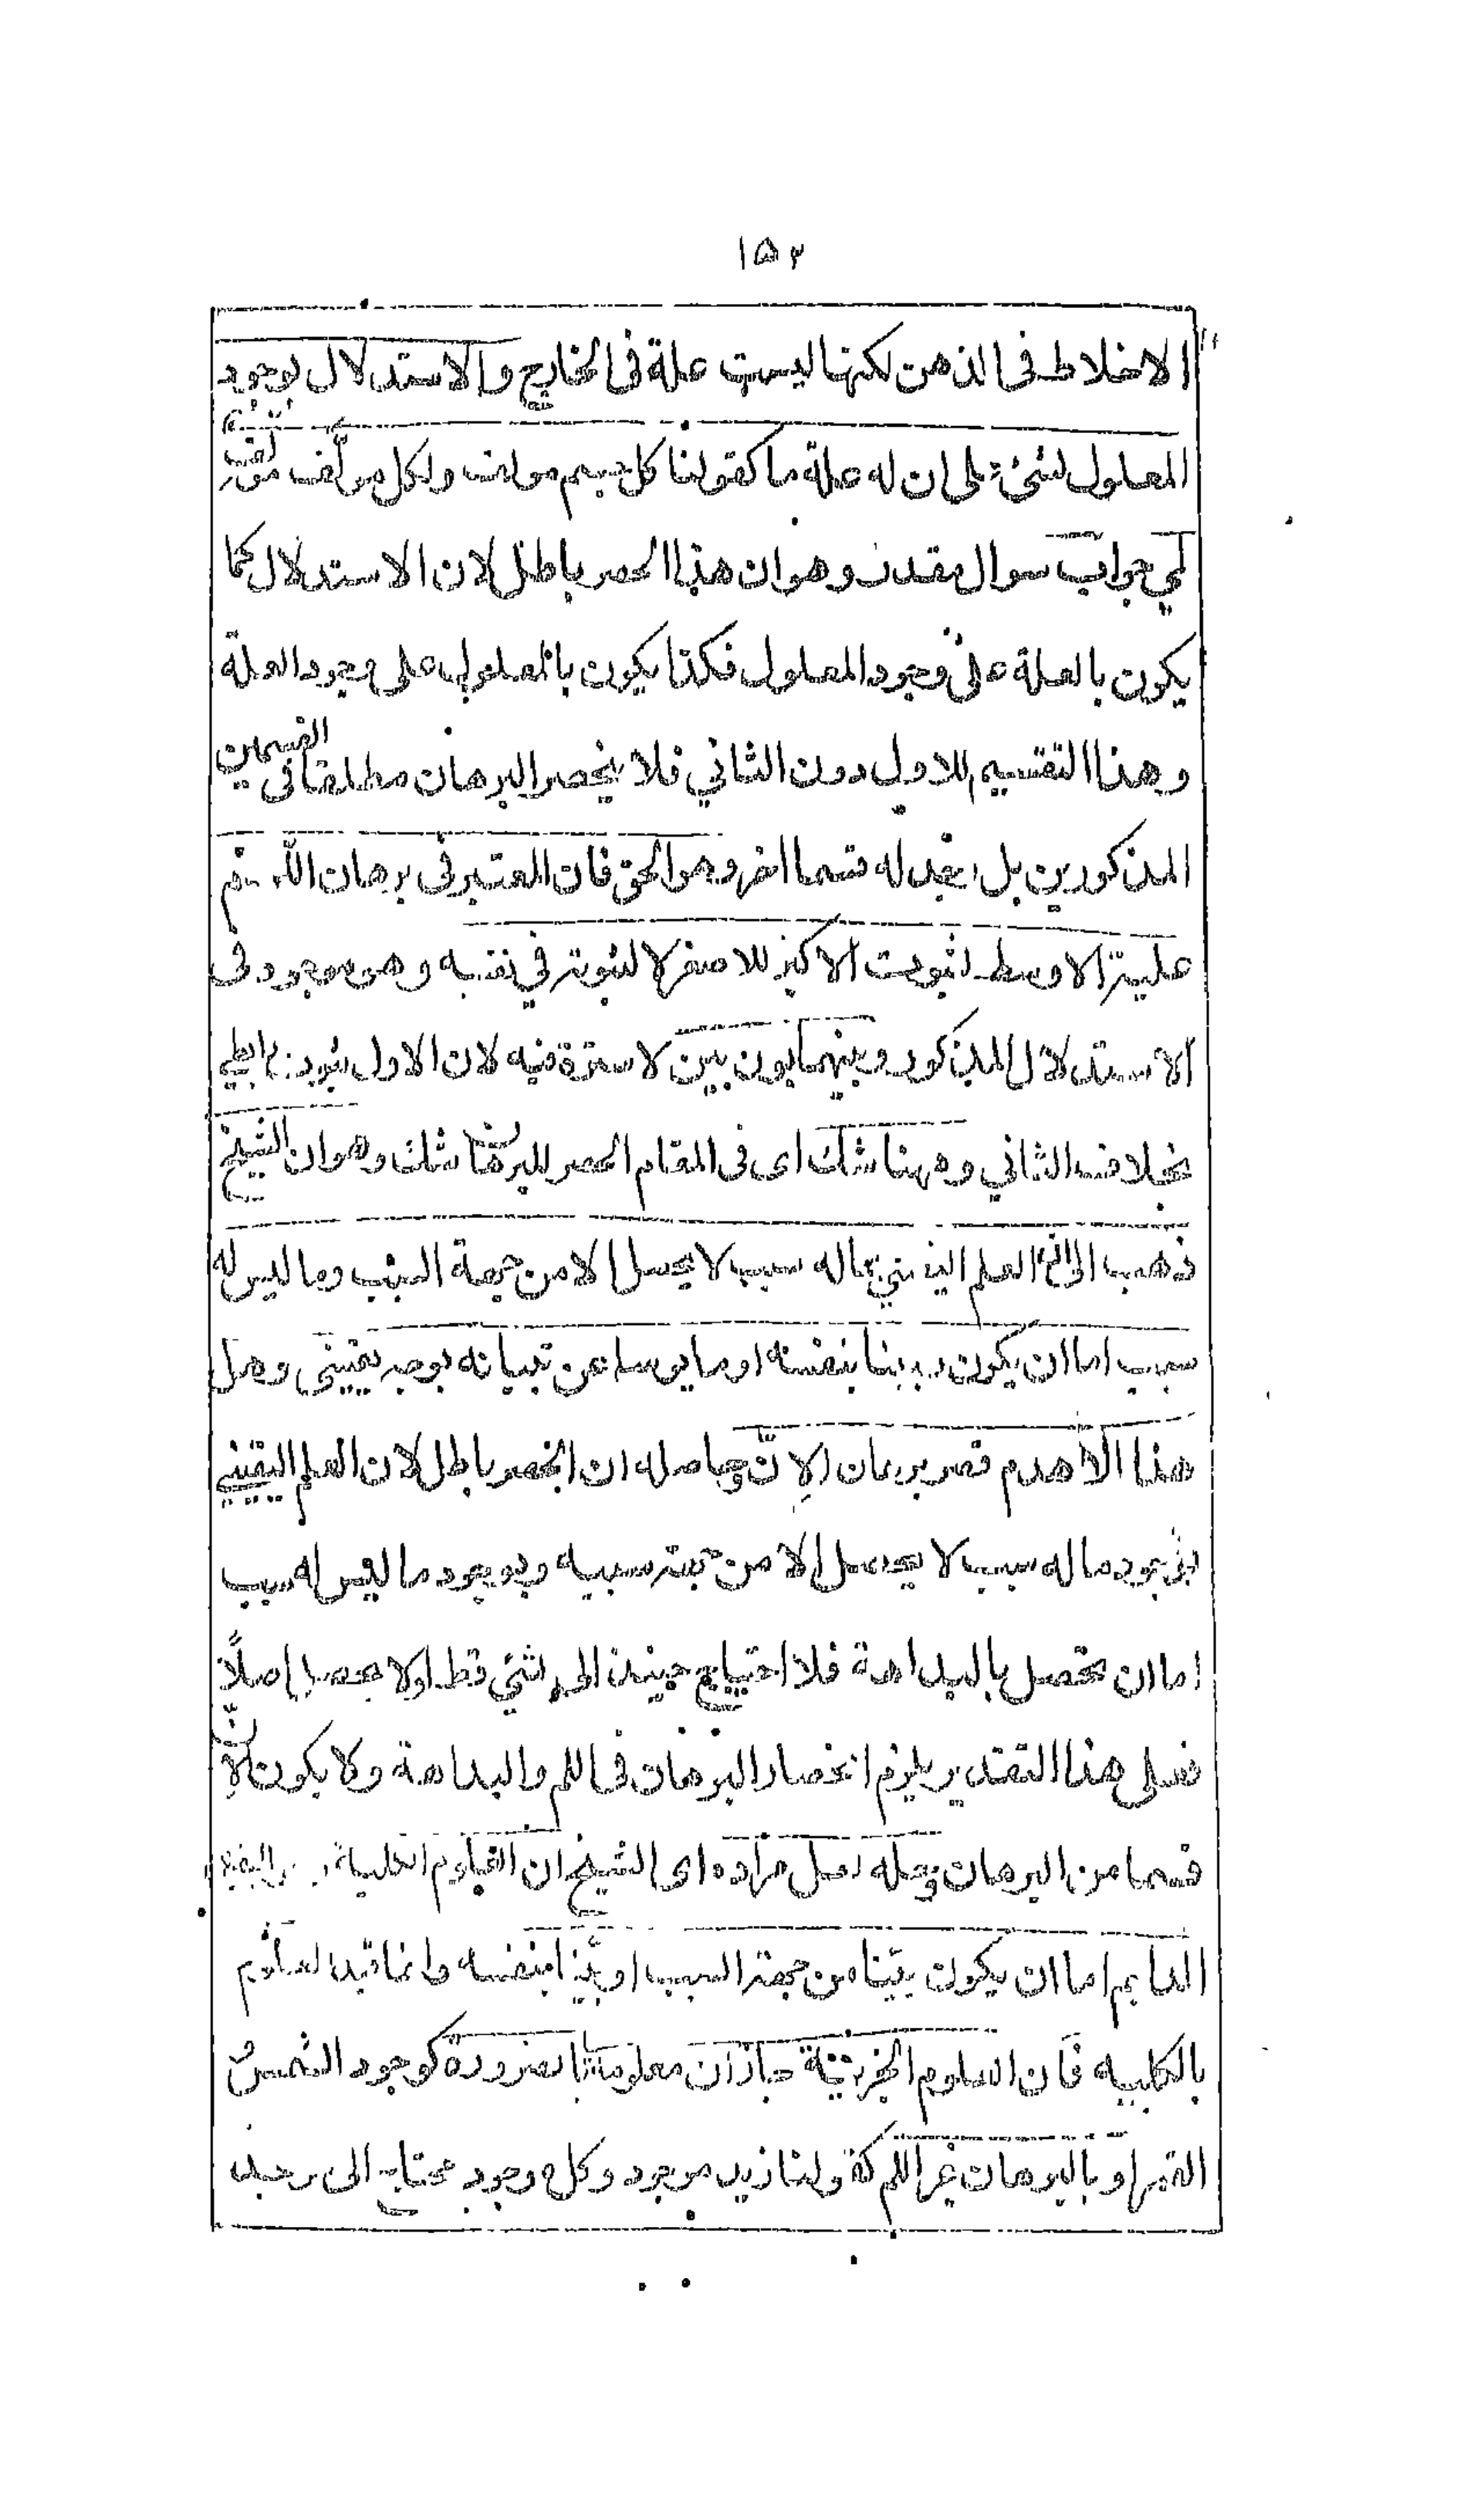 ١٥٢
الاخلاط فى الذهن لكنها ليست علة فى الخارج والاستدلال بوجود
المعلول لشئ على ان له علة ما كقولنا كل جسم مولف ولكل مولَّف مؤلِّف
لمي جواب سوال مقدر وهو ان هذا الحصر باطل لان الاستدلال كما
يكون بالعلة على وجود المعلول فكذا يكون بالمعلول على وجود العلة
وهذا التقسيم للاول دون الثاني فلا ينحصر البرهان مطلقا فى القسمين
المذكورين بل نجد له قسما اخر وهو الحق فان المعتبر فى برهان اللم
علية الاوسط لثبوت الاكبر للاصغر لا لثبوته في نفسه وهو موجود فى
الاستدلال المذكور وبينهما بون بين لا سترة فيه لان الاول
بخلاف الثاني وههنا شك اى فى المقام الحصر للبرهان شك وهو ان الشيخ
ذهب الى ان العلم اليقيني بما له سبب لا يحصل الا من جهة السبب وما ليس له
سبب اما ان يكون بينا بنفسه او مايوسا عن تبيانه بوجه يقيني وهل
هذا الا هدم قصر برهان الإنّ وحاصله ان الحصر باطل لان العلم اليقيني
بوجود ما له سبب لا يحصل الا من جهة سببه وبوجود ما ليس له سبب
اما ان تحصل بالبداهة فلا احتياج حينئذ الى شئي قط او لا يحصل اصلًا
فعلى هذا التقدير يلزم انحصار البرهان فى اللم والبداهة ولا يكون الإنّ
قسما من البرهان وحله لعل مراده اى الشيخ ان العلوم الكلية
الدايم اما ان يكون بيّنا من جهة السبب او بيّنا بنفسه وانما قيد العلوم
بالكليه فان العلوم الجزئية جاز ان معلومة بالضرورة كوجود الشمس
القمر او بالبرهان غير اللم كقولنا زيد موجود وكل موجود محتاج الى